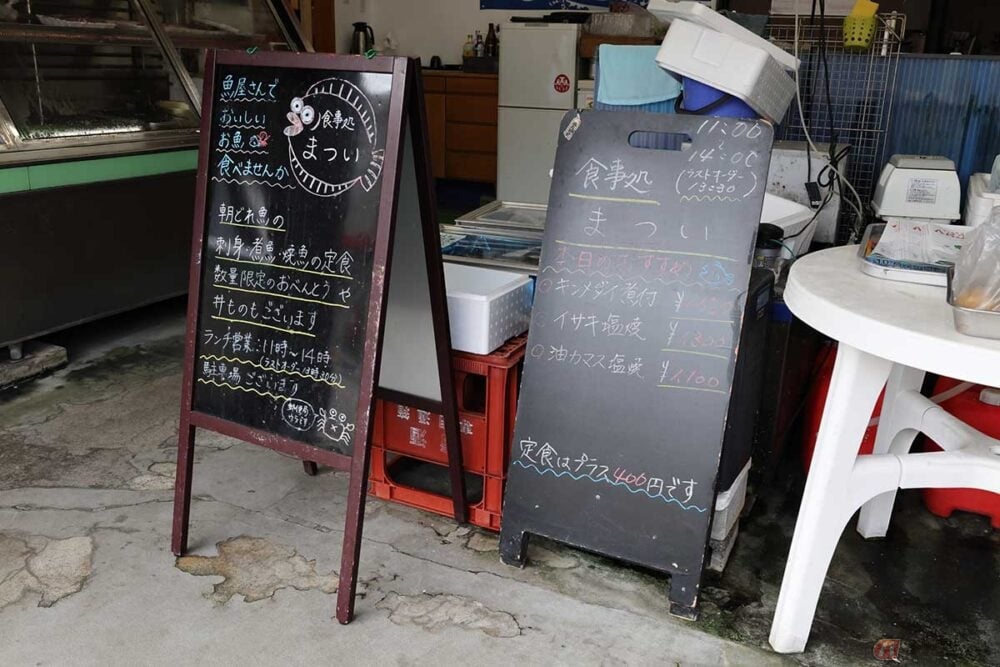 魚屋さんで
おいしい
お魚
食べませんか
食事処
まつい
朝どれ魚の
刺身・煮魚・焼魚の定食
数量限定のおべんとうや
丼ものもございます
ランチ営業:11時〜14時
(ラストオーダー13時30分)
駐車場ございます
11:00
〜
14:00
(ラストオーダー
13:30)
食事処
まつい
本日のおすすめ
○キンメダイ煮付
○イサキ塩焼 ¥1300
○油カマス塩焼 ¥1,100
定食はプラス400円です